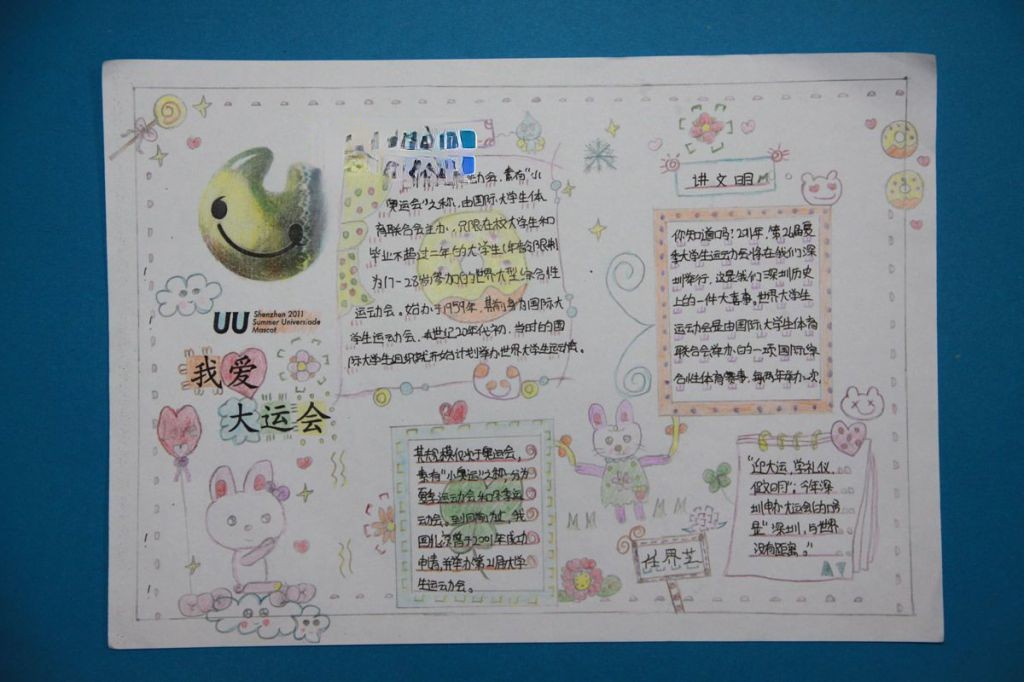 UU
Shenzhen 2011
Summer Universiade
Mascot
我爱
大运会
运会，素有“小
奥运会”之称，由国际大学生体
育联合会主办，只限在校大学生和
毕业不超过二年的大学生（年龄限制
为17-28岁）参加的世界大型综合性
运动会。始办于1959年，其前身为国际大
学生运动会，本世纪20年代初，当时的国
际大学生组织就开始计划举办世界大学生运动会。
讲文明
你知道吗？2011年，第26届夏
季大学生运动会将在我们深
圳举行，这是我们深圳历史
上的一件大喜事。世界大学生
运动会是由国际大学生体育
联合会举办的一项国际综
合性体育赛事，每两年举办一次，
其规模仅次于奥运会，
素有“小奥运”之称，分为
夏季运动会和冬季运
动会。到目前为止，我
国北京曾于2001年成功
申请，并举办第21届大学
生运动会。
“迎大运，学礼仪，
做文明”；今年深
圳申办大运会的口号
是“深圳，与世界
没有距离。”
世界芒